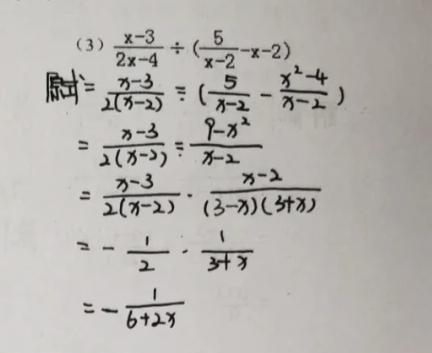 (3) \frac{x-3}{2x-4} ÷ (\frac{5}{x-2} -x-2)
原式 = \frac{x-3}{2(x-2)} ÷ (\frac{5}{x-2} - \frac{x^2-4}{x-2})
= \frac{x-3}{2(x-2)} ÷ \frac{9-x^2}{x-2}
= \frac{x-3}{2(x-2)} · \frac{x-2}{(3-x)(3+x)}
= - \frac{1}{2} · \frac{1}{3+x}
= - \frac{1}{6+2x}